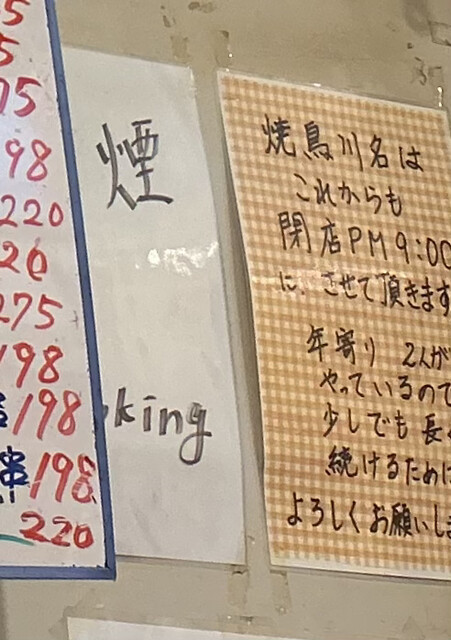 75
198
220
20
275
198
198
串198
220
煙
king
焼鳥川名は
これからも
閉店PM9:00
に、させて頂きます
年寄り 2人が
やっているので
少しでも長く
続けるために
よろしくお願いしま